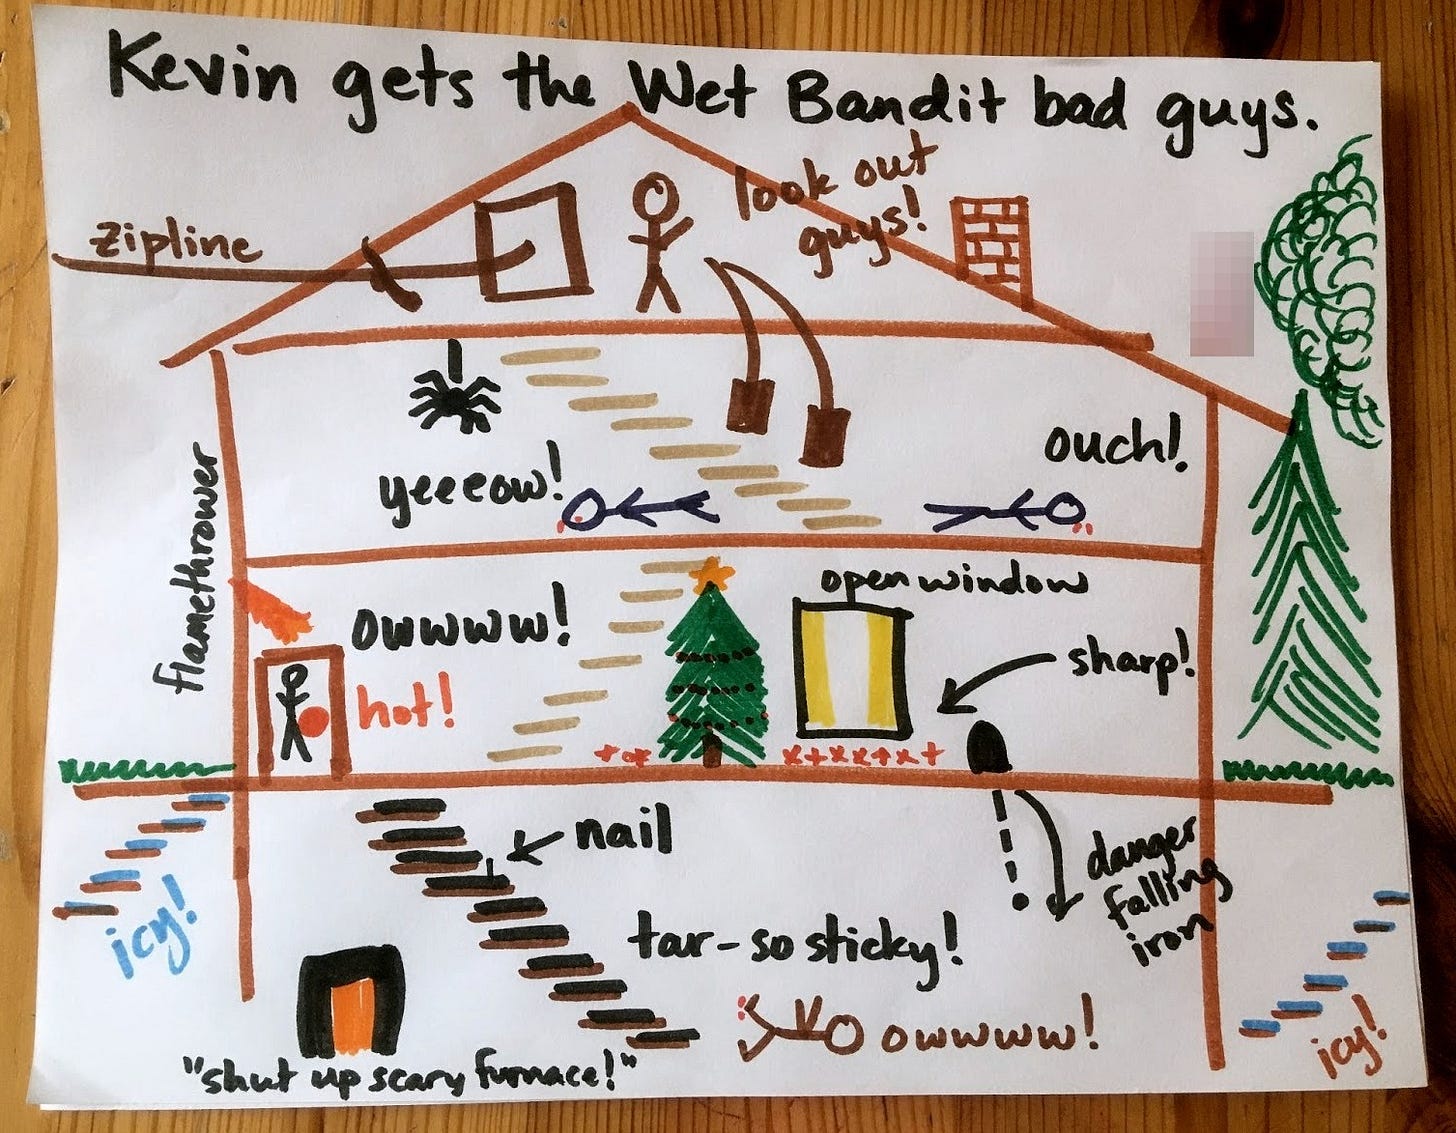 Kevin gets the Wet Bandit bad guys.
look out
guys!
zipline
ouch!
yeeeow!
flamethrower
open window
owwww!
sharp!
hot!
nail
danger
falling
iron
icy!
tar-so sticky!
owwww!
icy!
"shut up scary furnace!"